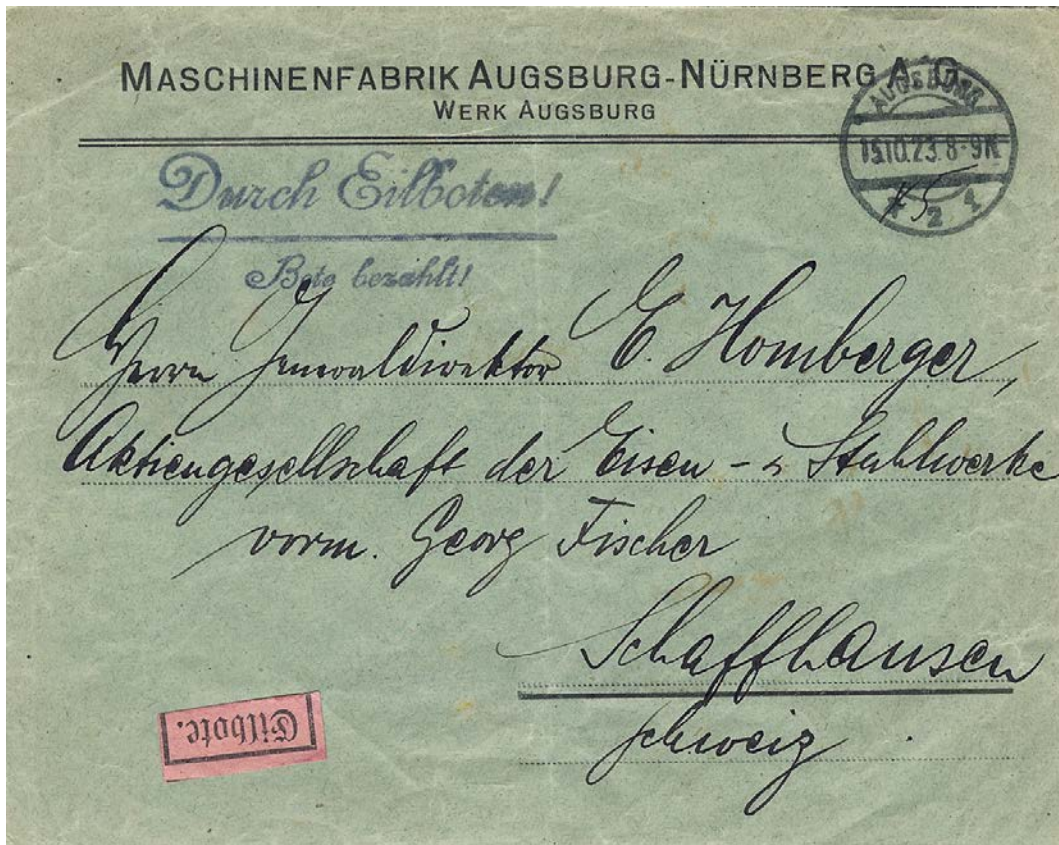 MASCHINENFABRIK AUGSBURG-NÜRNBERG A.G.
WERK AUGSBURG
AUGSBURG
15.10.23.8-9N.
* 2 1
Durch Eilboten!
Bote bezahlt!
Herrn Generaldirektor E. Homberger,
Aktiengesellschaft der Eisen- & Stahlwerke
vorm. Georg Fischer
Schaffhausen
Schweiz
Eilbote.